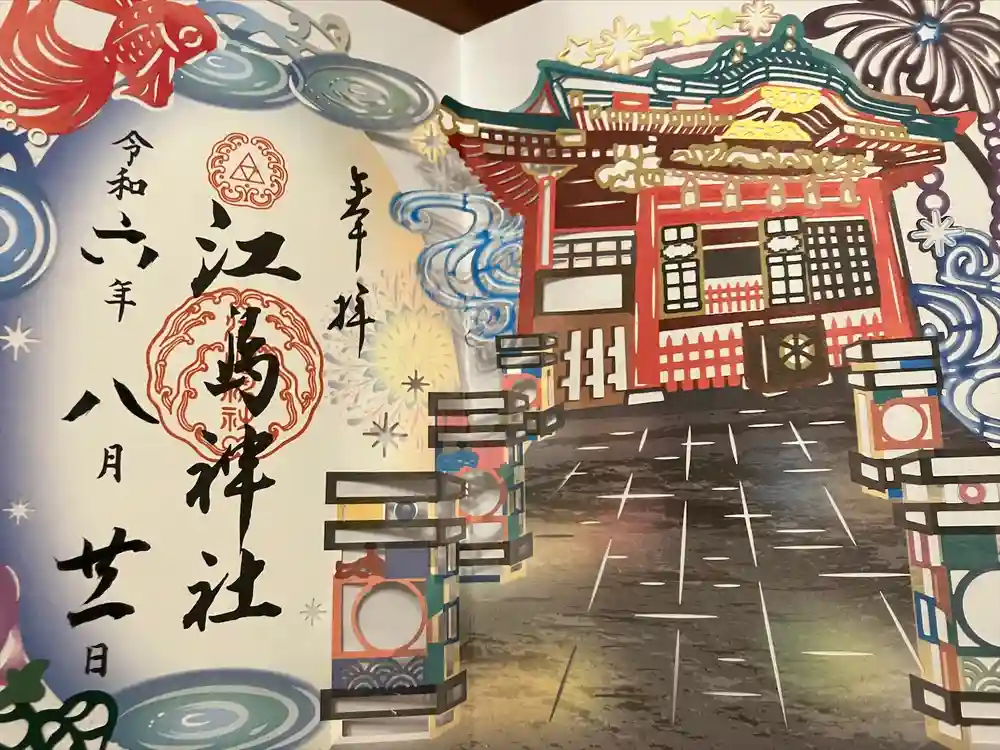 奉拝
江島神社
令和六年八月廿一日